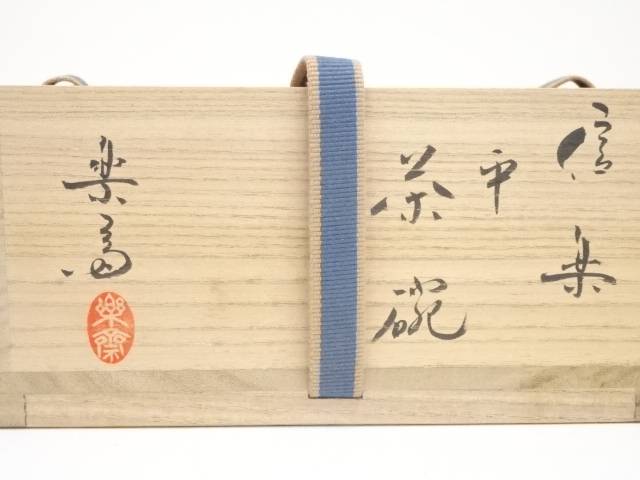 信楽
平
茶碗
楽斎
樂齋